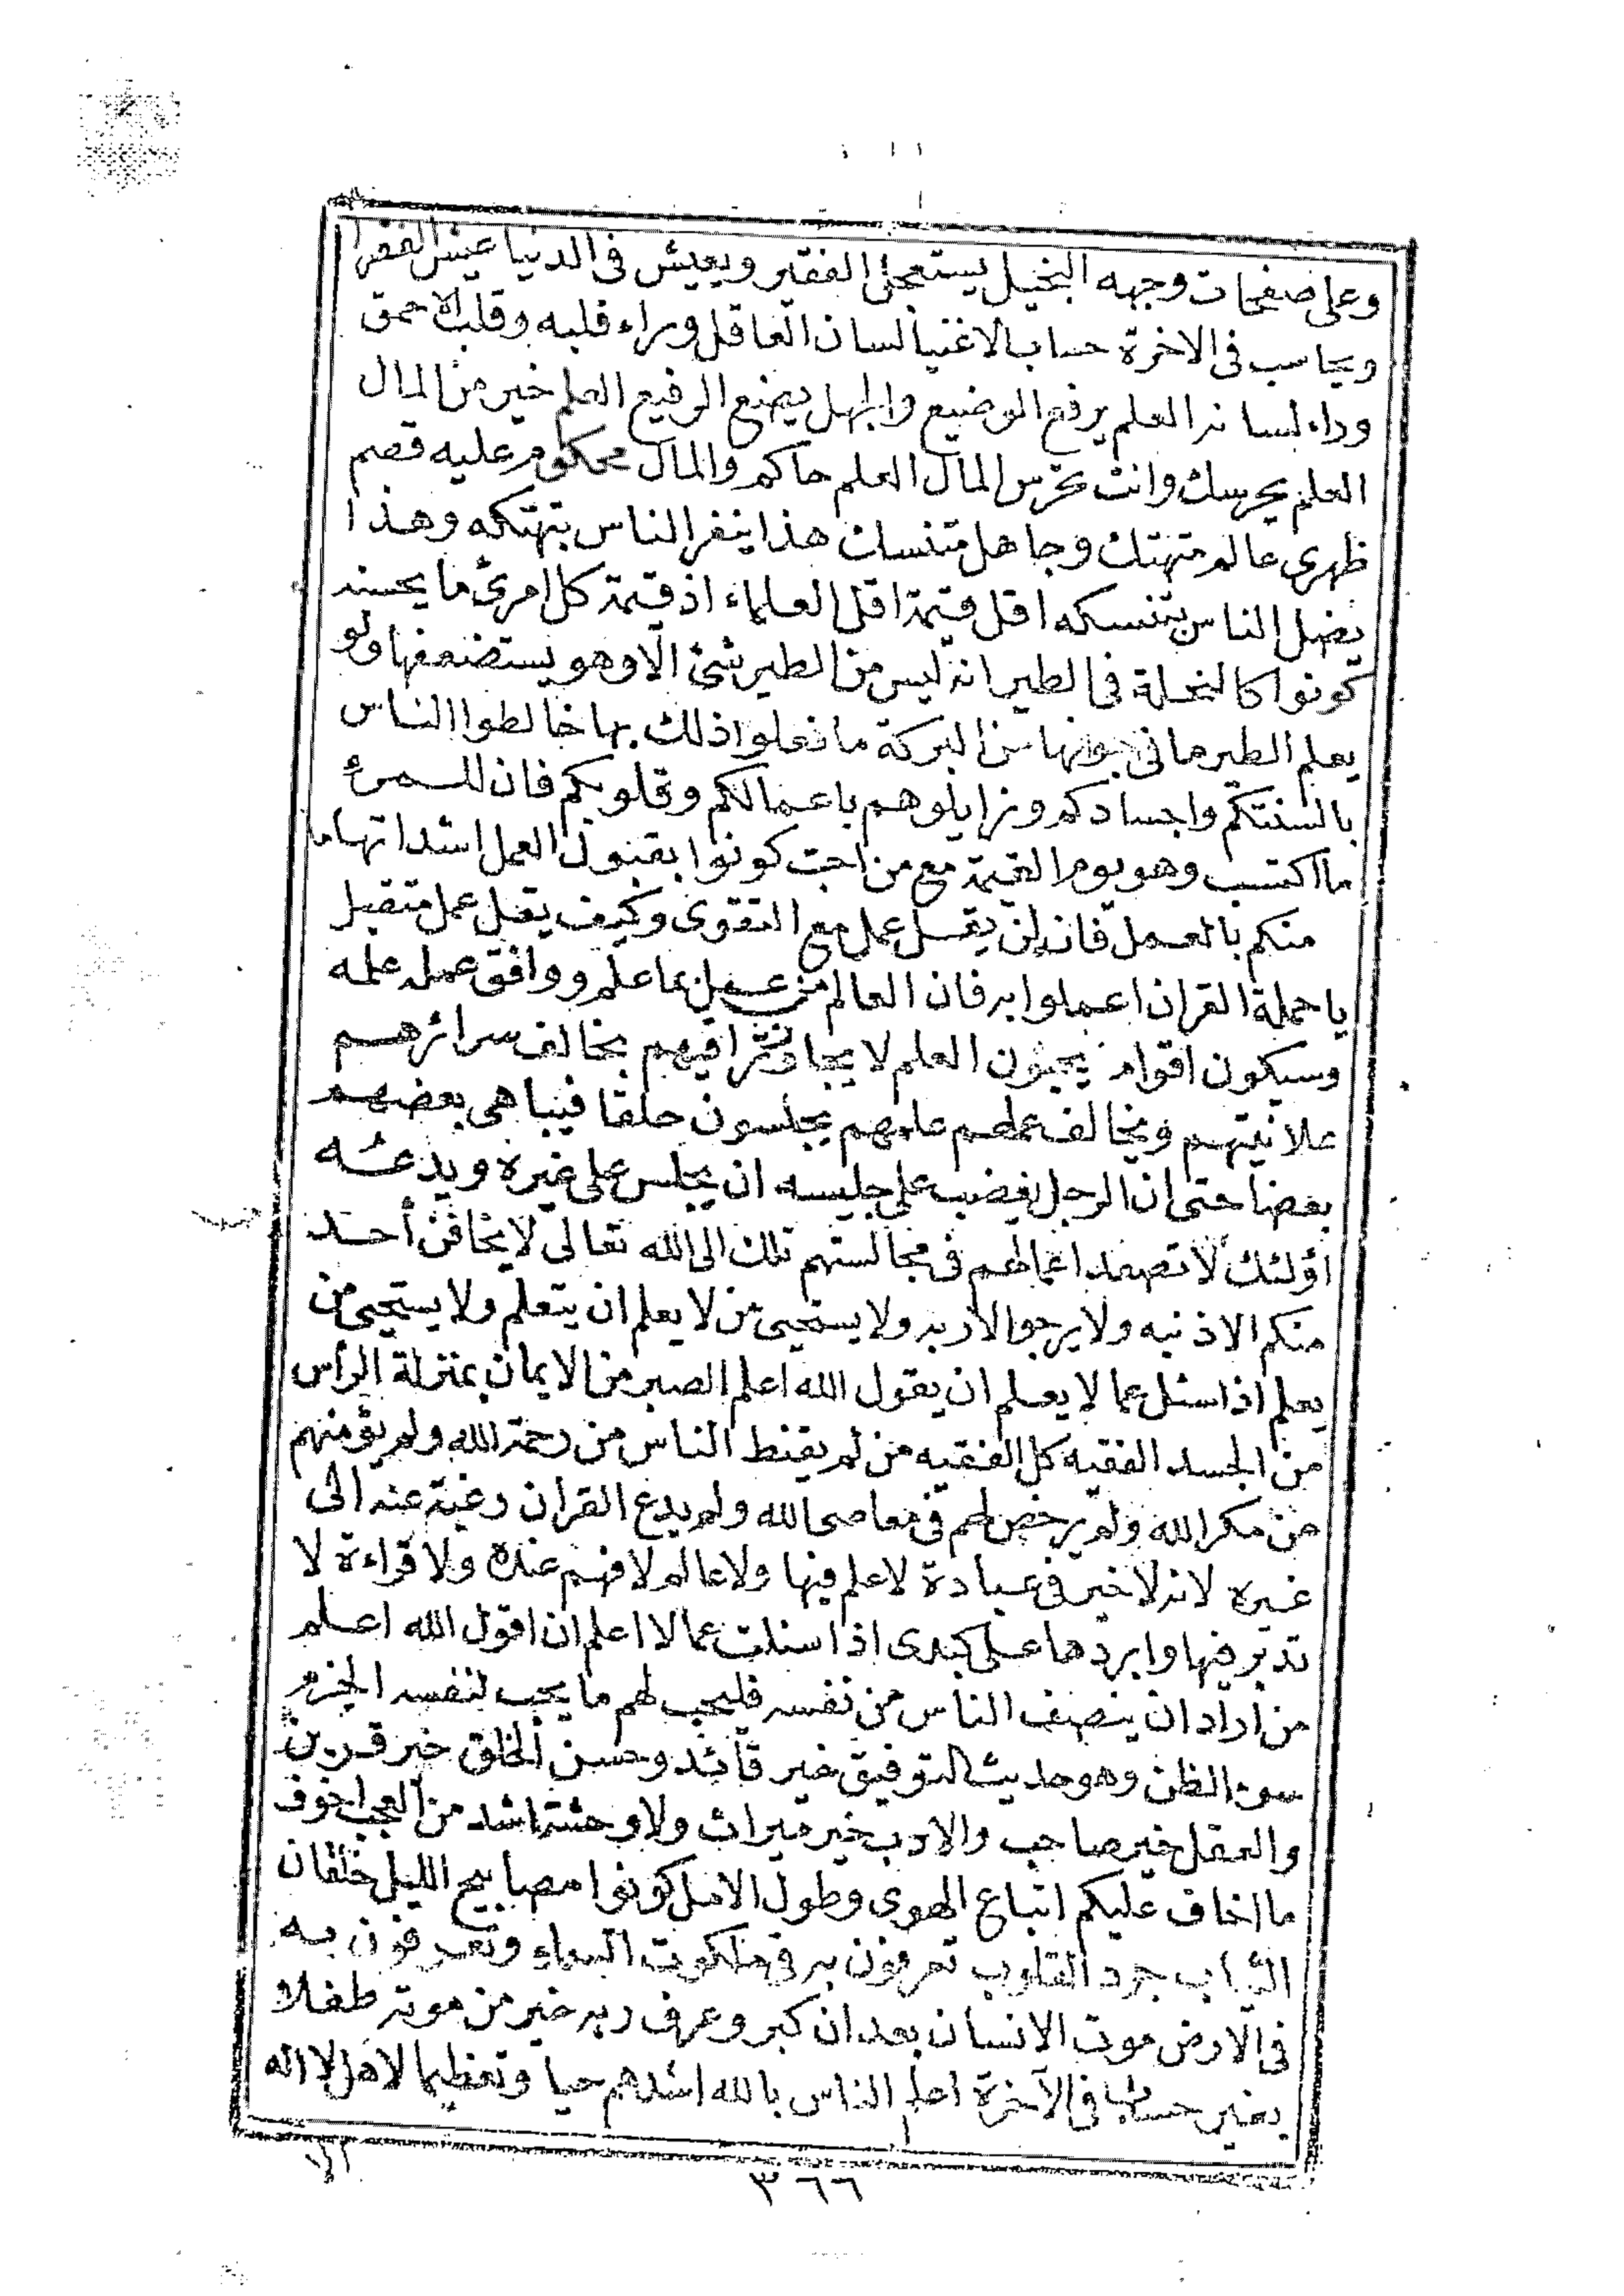 وعلى صفحات وجهه البخيل يستعجل الفقير ويعيش فى الدنيا عيش الفقرا
ويحاسب فى الاخرة حساب الاغنيا لسان العاقل وراء قلبه وقلب الاحمق
وراء لسانه العلم يرفع الوضيع والجهل يضع الرفيع العلم خير من المال
العلم يحرسك وانت تحرس المال العلم حاكم والمال محكوم عليه قصم
ظهرى عالم متهتك وجاهل متنسك هذا ينفر الناس بتهتكه وهذا
يضل الناس بتنسكه اقل قيمة اقل العلماء اذ قيمة كل امرئ ما يحسنه
كونوا كالنحلة فى الطير انه ليس من الطير شئ الا وهو يستضعفها ولو
يعلم الطير ما فى جوفها من البركة ما فعلوا ذلك بها خالطوا الناس
بالسنتكم واجسادكم وزايلوهم باعمالكم وقلوبكم فان للمرئ
ما اكتسب وهو يوم القيمة مع من احب كونوا بقبول العمل اشد اتهاما
منكم بالعمل فانه لن يقبل عمل مع التقوى وكيف يقل عمل متقبل
يا حملة القران اعملوا به فان العالم من عمل بما علم ووافق عمله علمه
وسيكون اقوام يحبون العلم لا يجاوز تراقيهم بخالف سرائرهم
علانيتهم ويخالف عملهم علمهم يجلسون حلقا فيباهى بعضهم
بعضا حتى ان الرجل يغضب على جليسه ان يجلس على غيره ويدعه
اؤلئك لا تصعد اعمالهم فى مجالستهم تلك الى الله تعالى لا يخافن أحد
منكم الا ذنبه ولا يرجو الا ربه ولا يستحى من لا يعلم ان يتعلم ولا يستحيى من
يعلم اذا سئل عما لا يعلم ان يقول الله اعلم الصبر من الايمان بمنزلة الرأس
من الجسد الفقيه كل الفقيه من لم يقنط الناس من رحمة الله ولم يؤمنهم
من مكر الله ولم يرخص لهم فى معاصى الله ولم يدع القران رغبة عنه الى
غيره لانه لا خير فى عبادة لا علم فيها ولا عالم لا فهم عنده ولا قراءة لا
تدبر فيها وابردها على كبدى اذا سئلت عما لا اعلم ان اقول الله اعلم
من اراد ان ينصف الناس من نفسه فليحب لهم ما يحب لنفسه الحزم
سوء الظن وهو حديث التوفيق خير قائد وحسن الخلق خير قرين
والعقل خير صاحب والادب خير ميراث ولا وحشة اشد من العجب اخوف
ما اخاف عليكم اتباع الهوى وطول الامل كونوا مصابيح الليل خلقان
الثياب جرد القلوب تعرفون به فى ملكوت السماء وتعرفون به
فى الارض موت الانسان بعد ان كبر وعرف ربه خير من موته طفلا
بغير حساب فى الآخرة اعلم الناس بالله اشدهم حبا وتعظيما لاهل لا اله
الا
٣٦٦